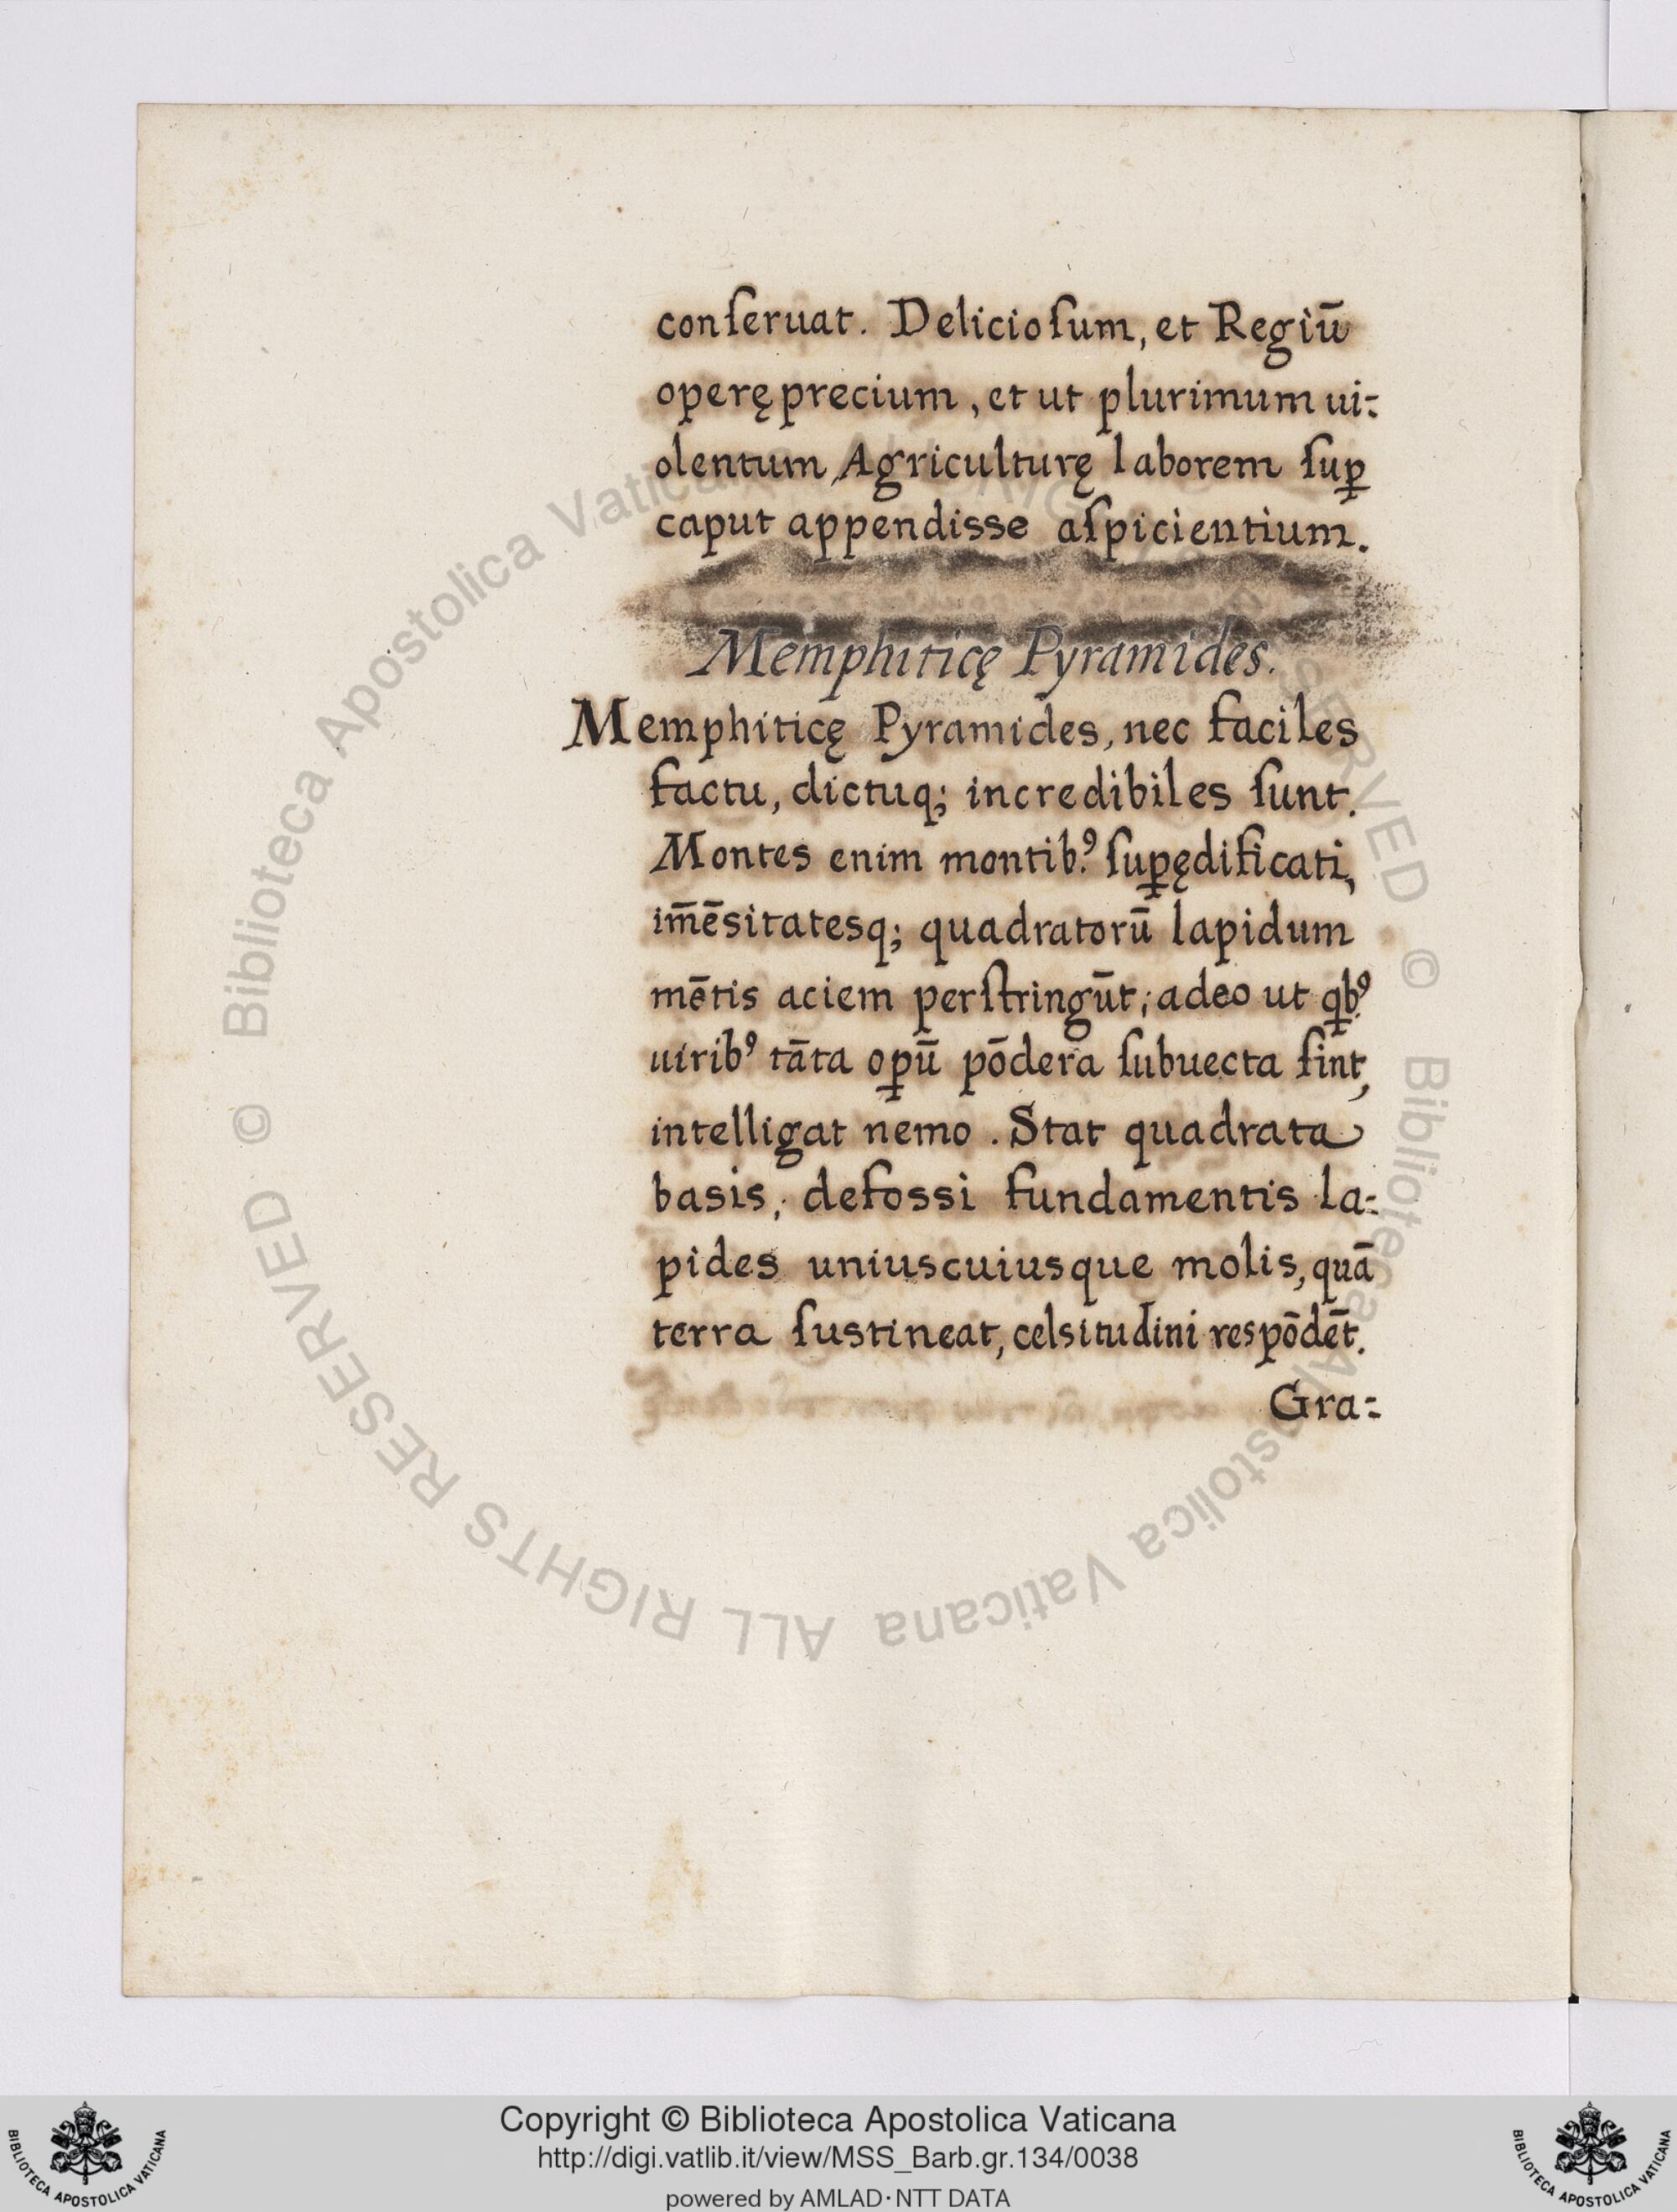 conſeruat. Delicioſum, et Regiū
operęprecium, et ut plurimum ui:
olentum Agriculturę laborem ſuꝑ
caput appendisse aſpicientium.
Memphiticę Pyramides.
Memphiticę Pyramides, nec faciles
factu, dictuq; incredibiles ſunt.
Montes enim montib.ꝰ ſuꝑędificati,
im̄ēsitatesq; quadratorū lapidum
mētis aciem perſtringūt; adeo ut qb.ꝰ
uiribꝰ tāta oꝑū pōdera ſubuecta ſint,
intelligat nemo. Stat quadrata
basis; defossi fundamentis la:
pides uniuscuiusque molis, quā
terra ſustineat, celsitudini respōdēt.
Gra:
© Biblioteca Apostolica Vaticana ALL RIGHTS RESERVED © Biblioteca Apostolica Vaticana ALL RIGHTS RESERVED
Copyright © Biblioteca Apostolica Vaticana
http://digi.vatlib.it/view/MSS_Barb.gr.134/0038
powered by AMLAD·NTT DATA
BIBLIOTECA APOSTOLICA VATICANA
BIBLIOTECA APOSTOLICA VATICANA